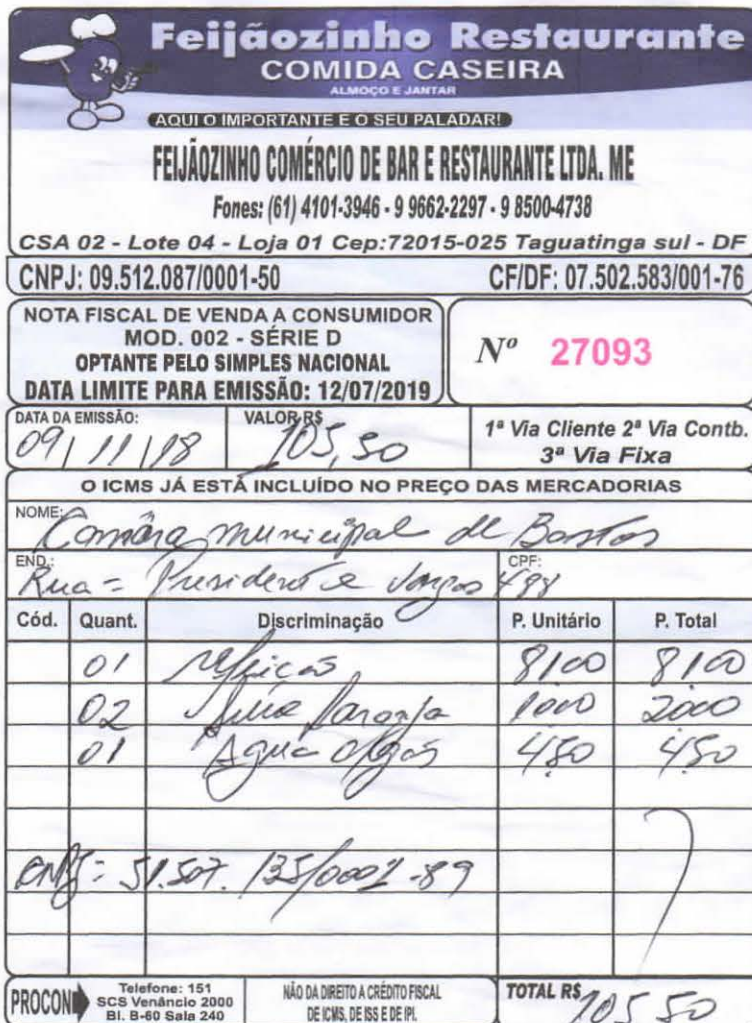 Feijãozinho Restaurante
COMIDA CASEIRA
ALMOÇO E JANTAR
AQUI O IMPORTANTE E O SEU PALADAR!
FEIJÃOZINHO COMÉRCIO DE BAR E RESTAURANTE LTDA. ME
Fones: (61) 4101-3946 - 9 9662-2297 - 9 8500-4738
CSA 02 - Lote 04 - Loja 01 Cep:72015-025 Taguatinga sul - DF
CNPJ: 09.512.087/0001-50 CF/DF: 07.502.583/001-76
NOTA FISCAL DE VENDA A CONSUMIDOR
MOD. 002 - SÉRIE D
OPTANTE PELO SIMPLES NACIONAL
DATA LIMITE PARA EMISSÃO: 12/07/2019
Nº 27093
DATA DA EMISSÃO: 09/11/18
VALOR R$ 105,50
1ª Via Cliente 2ª Via Contb.
3ª Via Fixa
O ICMS JÁ ESTÁ INCLUÍDO NO PREÇO DAS MERCADORIAS
NOME: Camâra municipal de Bastos
END.: Rua = Presidente Vargas 498 CPF:
Cód. Quant. Discriminação P. Unitário P. Total
01 refeição 8100 8100
02 Suco laranja 1000 2000
01 Agua 450 450
CNPJ = 51.507.135/0001-89
PROCON Telefone: 151
SCS Venâncio 2000
Bl. B-60 Sala 240
NÃO DA DIREITO A CRÉDITO FISCAL
DE ICMS, DE ISS E DE IPI.
TOTAL R$ 105,50